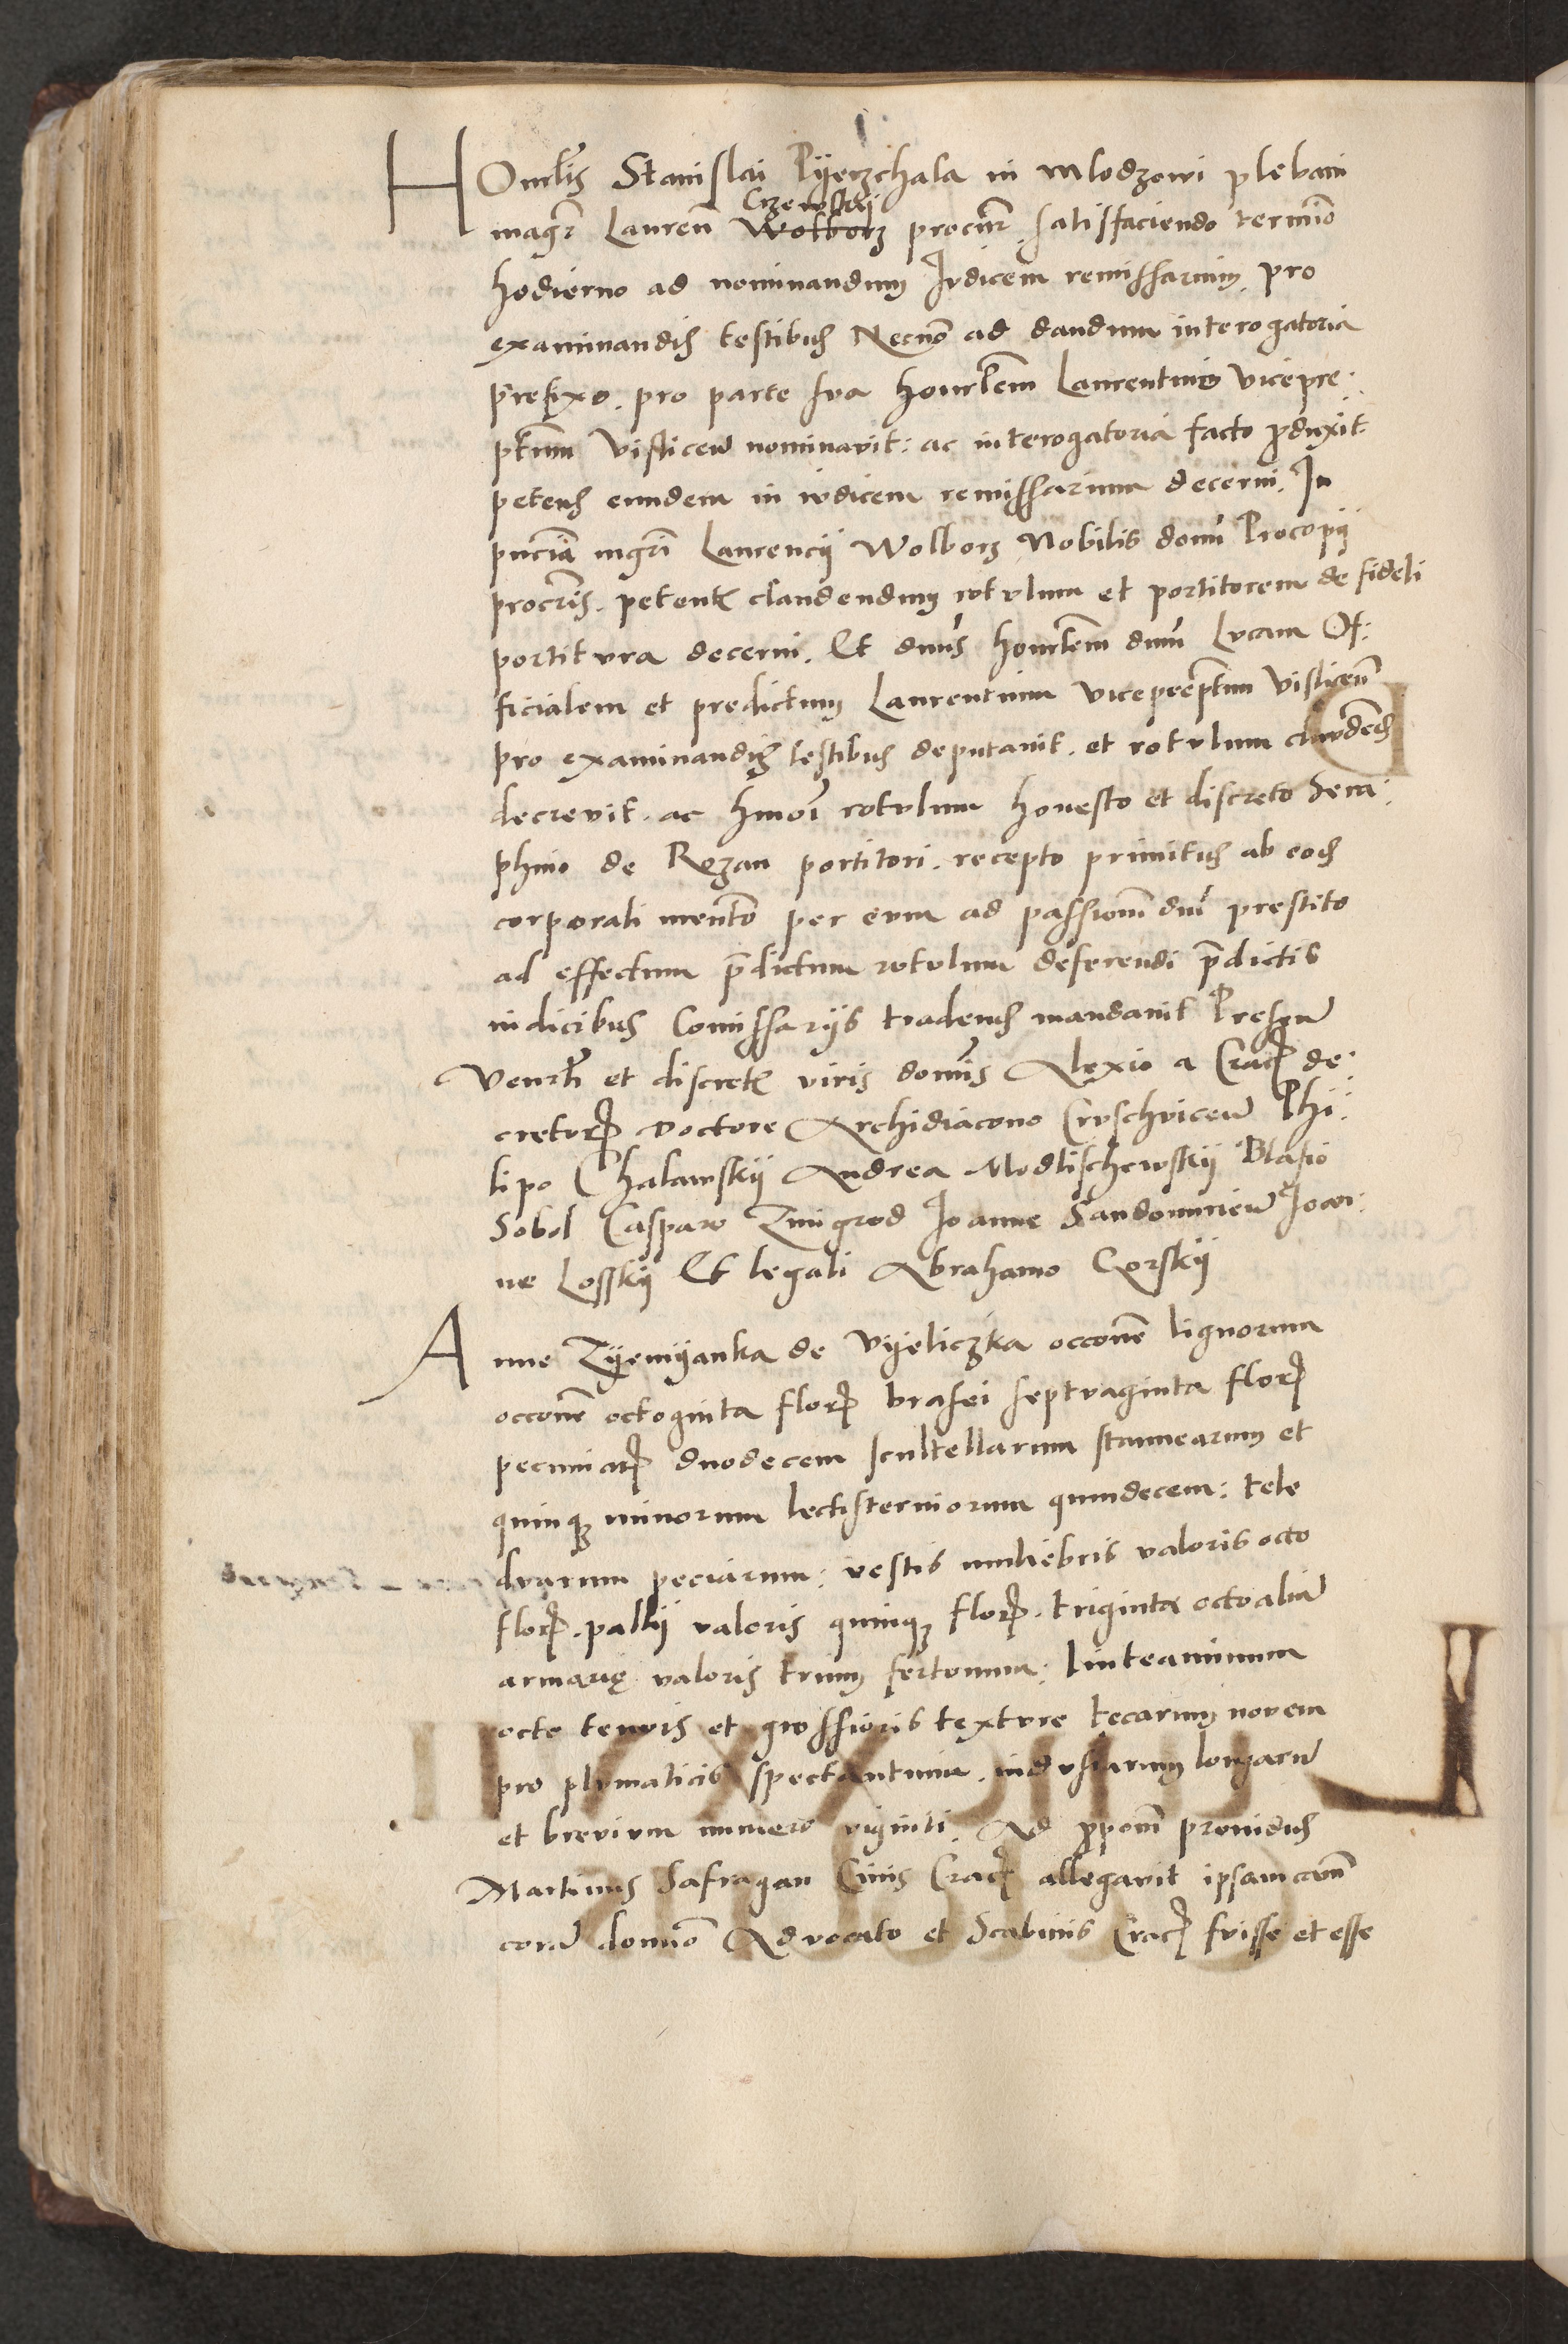 Honrlis Stanislai Pyerzchala in Mlodzowi plebani
magr Lauren Czerwskij Wolborz procur. satisfaciendo termino
hodierno ad nominandum Judicem remissarium, pro
examinandis testibus Necno ad dandum interogatoria
prefixo. pro parte sua honrlem Laurentium vicepre:
ptum Visliceñ nominavit: ac interogatoria facto pduxit.
petens eundem in iudicem remissarium decerni. In
pncia mgri Laurencij Wolborz Nobilis domi Procopij
procris. petent claudendum rotulum et portitorem de fideli
portitura decerni. Et dnus honrlem dnm Lucam Of:
ficialem et predictum Laurentium vicepreptum Visliceñ
pro examinandis testibus deputavit. et rotulum claudend
decrevit. ac hmoi rotulum honesto et discreto Sera:
phino de Rozan portitori. recepto primitus ab eod
corporali iuramento per eum ad passionem dni prestito
ad effectum predictum rotulum deferendi predictis
iudicibus Comissarijs tradens mandavit Presen
Venrli et discretis viris dominis Alexio a Crac de:
cretorum Doctore Archidiacono Cruschvicen Phi:
lipo Chalawskij Andrea Modlischewskij Blasio
Sobol Caspare Zmigrod Joanne Sandomirien Joan:
ne Losskij Et legali Abrahamo Gorskij
Anne Zyemyanka de Vyeliczka occone lignorum
occone octoginta flor brasei septuaginta flor
pecuniar duodecem scultellarum stannearum et
quinque minorum lectisterniorum quindecem: tele
duarum peciarum: vestis muliebris valoris octo
flor. pallij valoris quinque flor. triginta octo aliar
armarie valoris trium fertonum: linteaminum
octo tenuis et grossioris texture tecarum novem
pro plumaticis spectantium. indusiarum longarum
et brevium numero viginti. Ad pponem providus
Martinus Safragan Civis Crac allegavit ipsam cam
coram domino Advocato et Scabinis Crac fuisse et esse